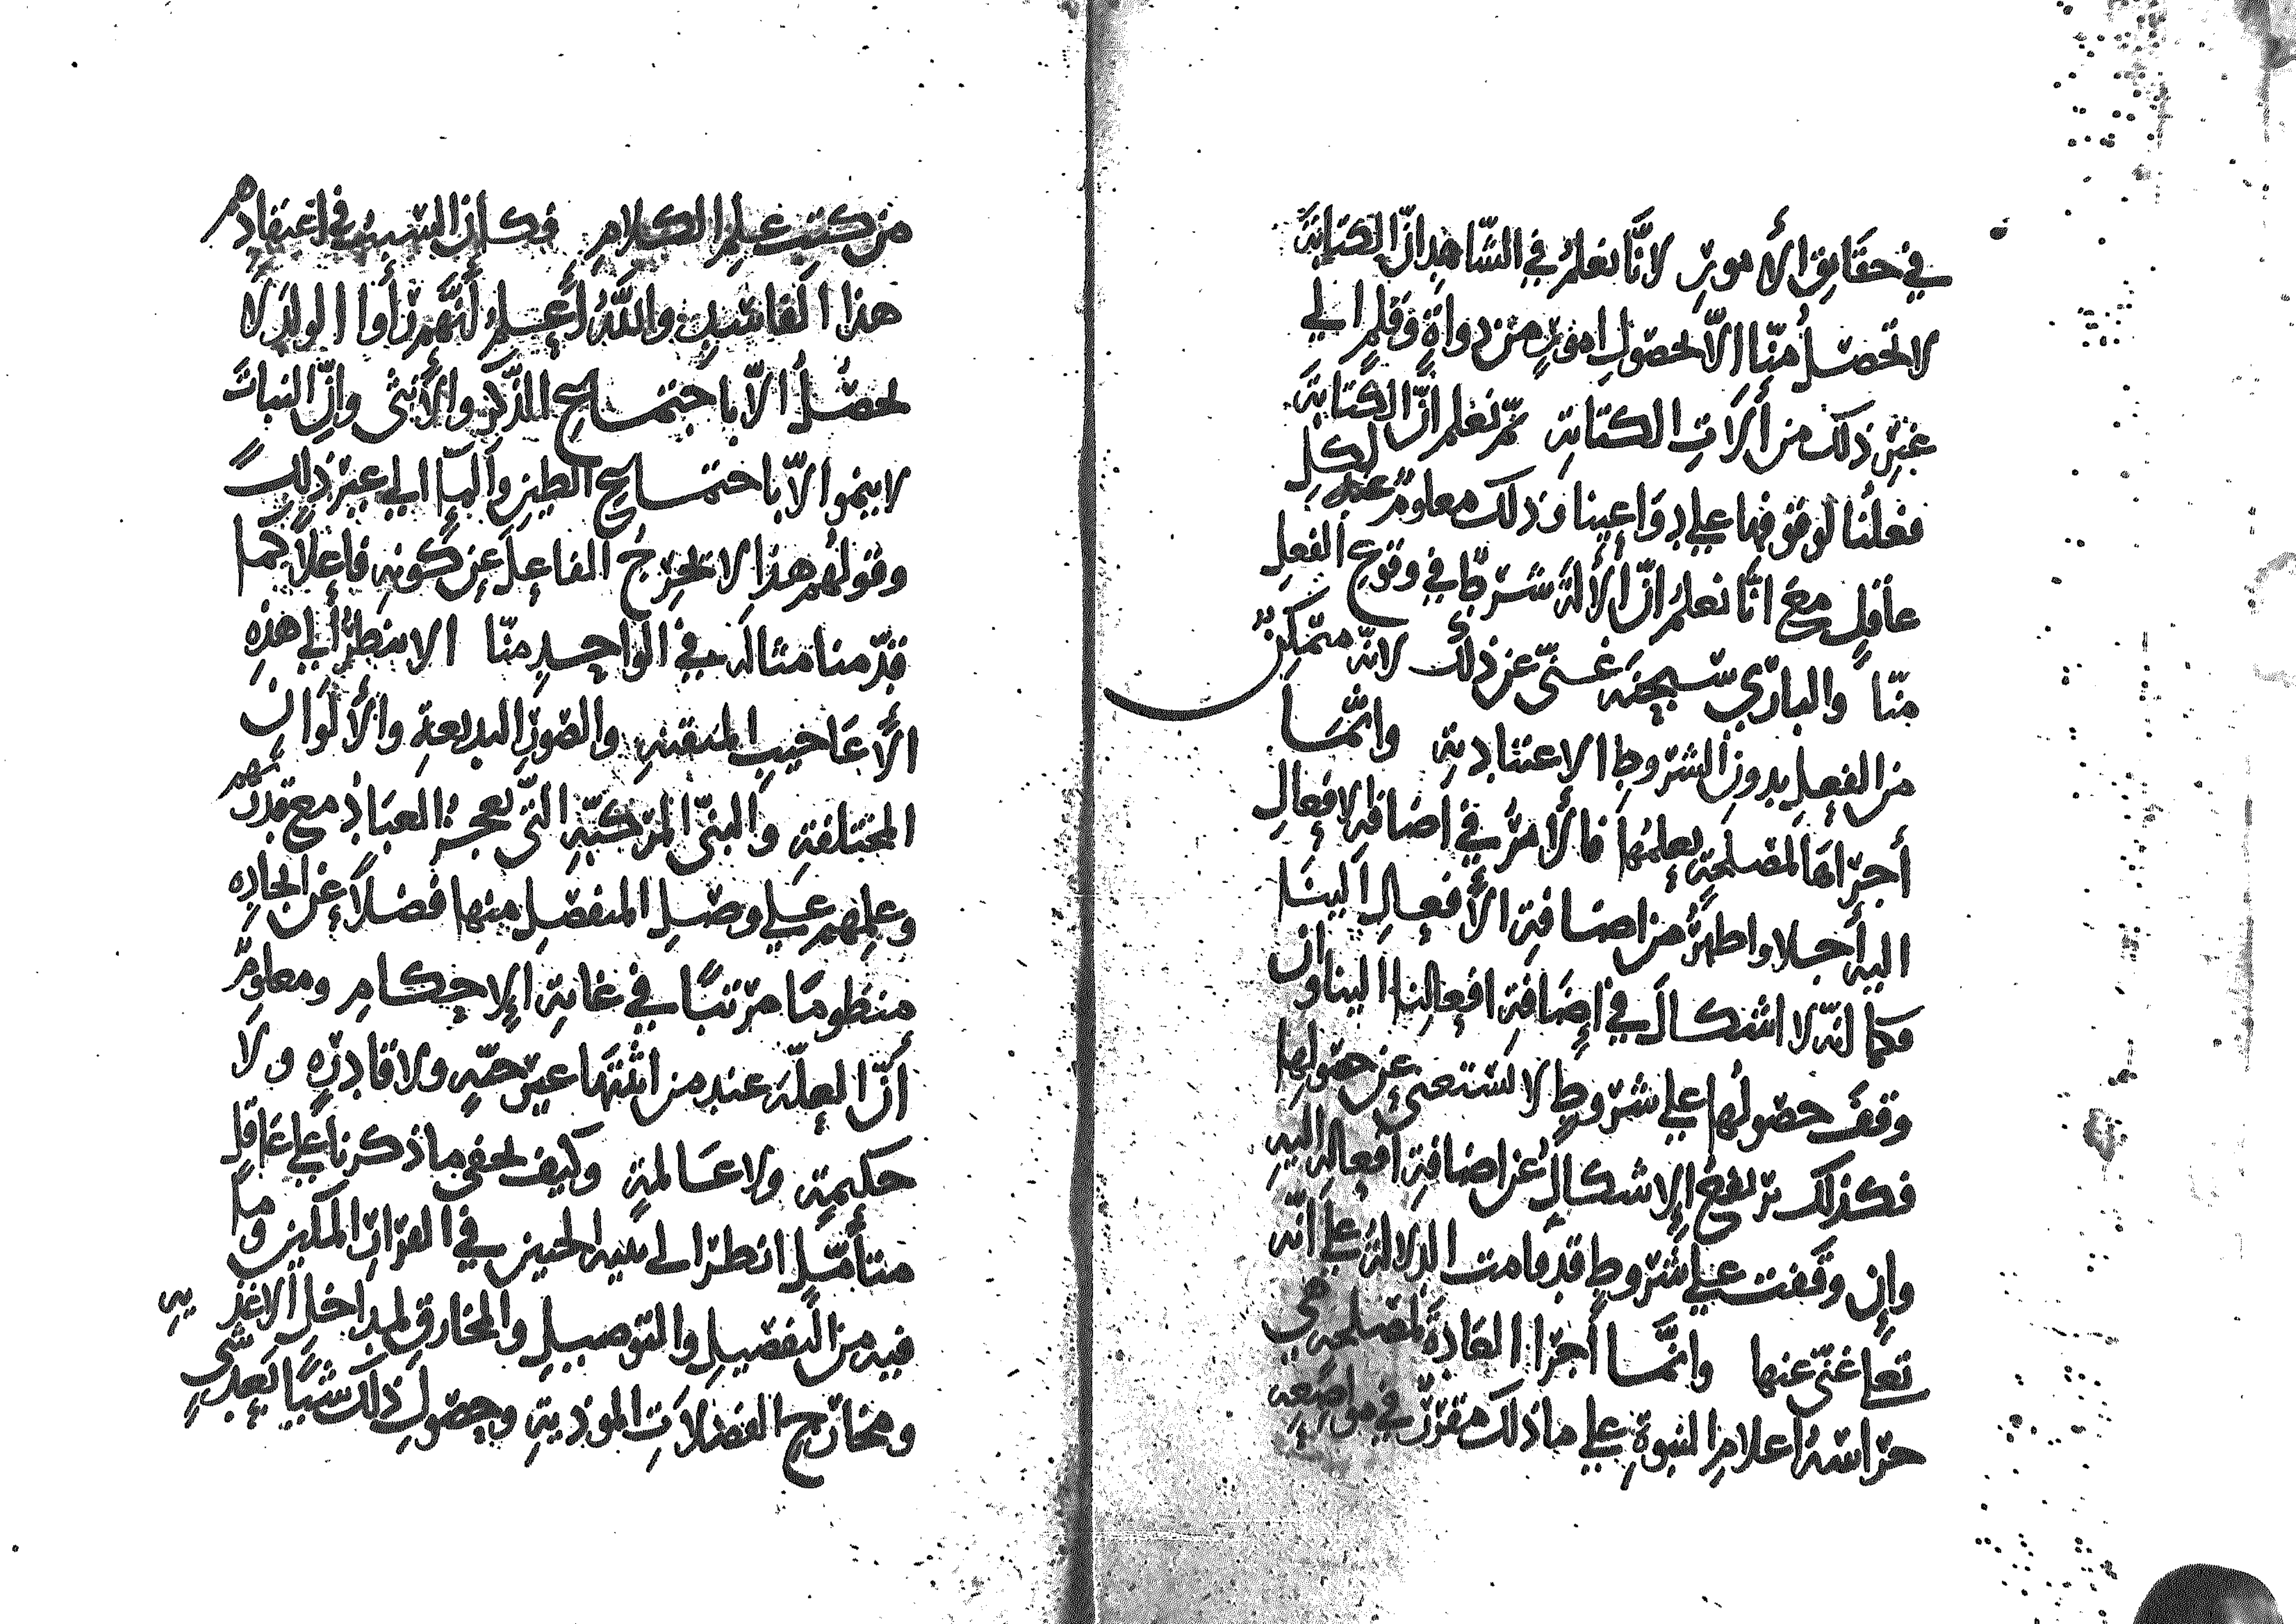 في حقايق الأمور لانَّا نعلم في الشّاهد انّ الكتابة
لا تحصل منّا الّا بحصول امور من دواة وقلم الى
غير ذلك من ألات الكتابة ثم نعلم انّ الكتابة
فعلنا لوقوفها على دواعينا وذلك معلوم عند لكل
عاقل مع انّا نعلم انّ الألة شرط في وقوع الفعل
منّا والباري سبحنه غنيّ عن ذلك لانه متمكن
من الفعل بدون الشروط الاعتيادية وانّما
أجراها لمصلحة يعلمها فالأمر في اضافة الافعال
اليه أجلا واظهر من اضافة الأفعال الينا
فكما انّه لا اشكال في إضافة افعالنا الينا وان
وقف حصولها على شروط لا نستغني عن حصولها
فكذلك يرتفع الإشكال عن اضافة افعاله اليه
وإن وقفت على شروط قد قامت الدلالة على انّه
تعالى غنيّ عنها وانّما أجرا العادة لمصلحة هي
حراسة اعلام النبوة على ما ذلك مقرّر في مواضعه
من كتب علم الكلام فكان السبب في اعتقادهم
هذا الفاسد والله أعلم أنّهم رأوا الولد لا
يحصل الّا باجتماع الذّكر والأنثى وانّ النبات
لا ينموا الّا باجتماع الطين والما الى غير ذلك
وقولهم هذا لا يخرج الفاعل عن كونه فاعلاً كما
قدّمنا مثاله في الواحد منّا الا ينظر الى هذه
الأعاجيب المتقنه والصور البديعة والألوان
المختلفة والبنى المركبّه التي يعجز العباد مع قدرتهم
وعلمهم على وصل المنفصل منها فضلاً عن ايجاده
منظومًا مرتبًا في غاية الإحكام ومعلوم
أنّ العلّة عند من اثبتها غير حيّه ولا قادره ولا
حكيمة ولا عالمة وكيف يخفى ما ذكرنا على عاقل
متأمّل انظر الى بنيه الجنين في القرار المكين وما
فيه من التفصيل والتوصيل والمخارق لمداخل الاغذيه
ومخارج الفضلات الموذية وحصول ذلك شيًا بعد شي